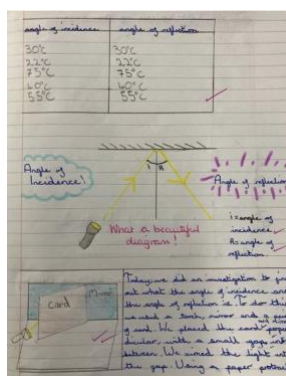 angle of incidence angle of reflection
30°c 30°c
22°c 22°c
75°c 75°c
40°c 40°c
55°c 55°c
i R
Angle of
Incidence!
Angle of reflection
What a beautiful
diagram!
i = angle of
incidence
R = angle of
reflection.
Card
Mirror
Today we did an investigation to find
out what the angle of incidence and
the angle of reflection is. To do this
we used a torch, mirror and a piece
of card. We placed the card perpen
dicular, with a small gap in
between. We aimed the light into
the gap. Using a paper protractor